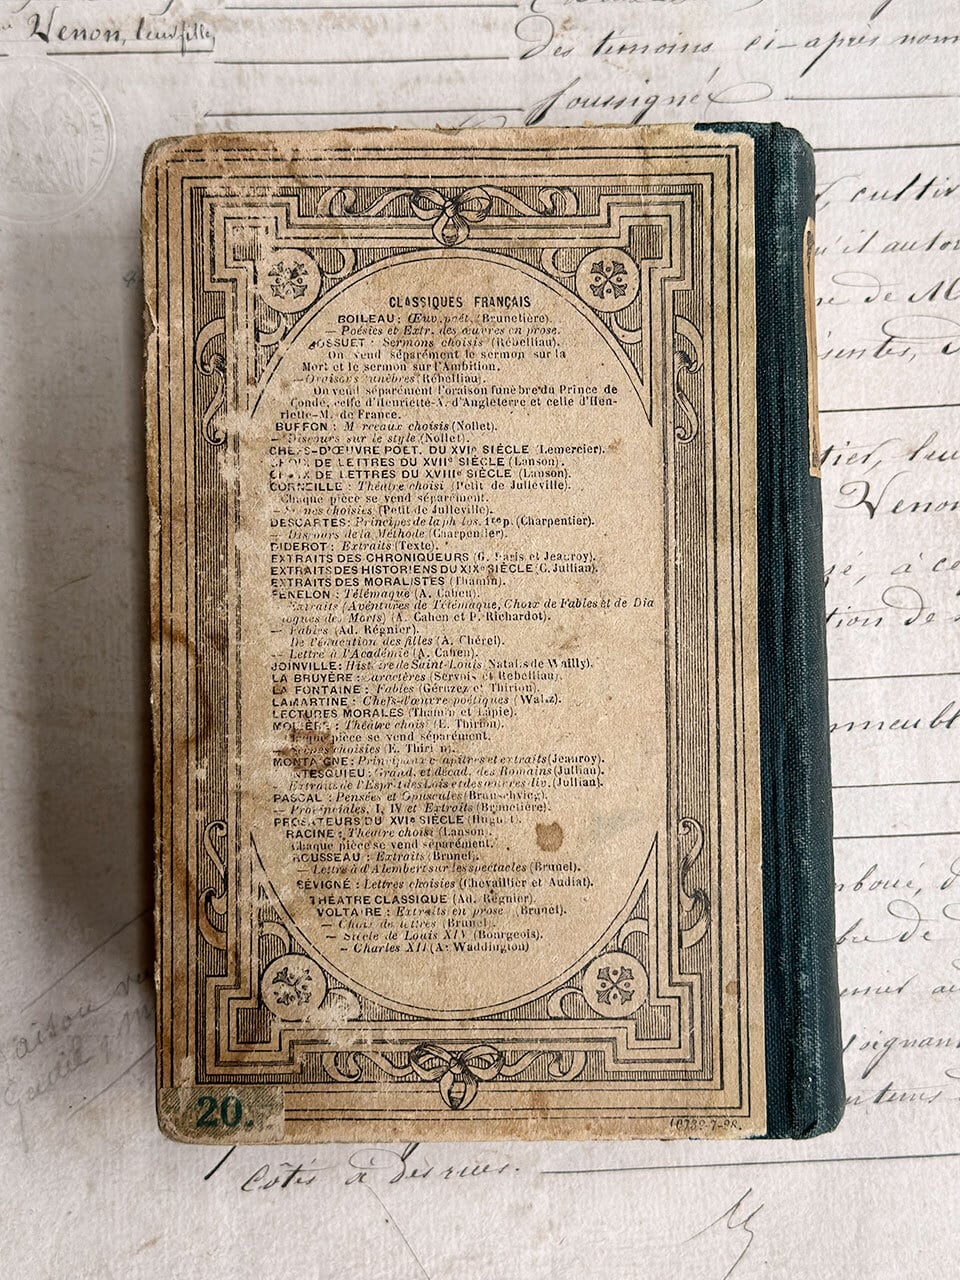 Venon, leur fille
des témoins ci-après nom
soussigné
CLASSIQUES FRANÇAIS
BOILEAU : Œuv. poét. (Brunetière).
— Poésies et Extr. des œuvres en prose.
BOSSUET : Sermons choisis (Rébelliau).
On vend séparément le sermon sur la
Mort et le sermon sur l'Ambition.
— Oraisons funèbres (Rébelliau).
On vend séparément l'oraison funèbre du Prince de
Condé, celle d'Henriette-A. d'Angleterre et celle d'Hen-
riette-M. de France.
BUFFON : Morceaux choisis (Nollet).
— Discours sur le style (Nollet).
CHEFS-D'ŒUVRE POET. DU XVIe SIÈCLE (Lemercier).
CHOIX DE LETTRES DU XVIIe SIÈCLE (Lanson).
CHOIX DE LETTRES DU XVIIIe SIÈCLE (Lanson).
CORNEILLE : Théâtre choisi (Petit de Julleville).
Chaque pièce se vend séparément.
— Scènes choisies (Petit de Julleville).
DESCARTES : Principes de la philos. 1re p. (Charpentier).
— Discours de la Méthode (Charpentier).
DIDEROT : Extraits (Texte).
EXTRAITS DES CHRONIQUEURS (G. Paris et Jeanroy).
EXTRAITS DES HISTORIENS DU XIXe SIÈCLE (C. Jullian).
EXTRAITS DES MORALISTES (Thamin).
FENELON : Télémaque (A. Cahen).
— Extraits (Aventures de Télémaque, Choix de Fables et de Dia
logues des Morts) (A. Cahen et P. Richardot).
— Fables (Ad. Régnier).
— De l'éducation des filles (A. Chérel).
— Lettre à l'Académie (A. Cahen).
JOINVILLE : Histoire de Saint-Louis Natalis de Wailly).
LA BRUYÈRE : Caractères (Servois et Rébelliau).
LA FONTAINE : Fables (Géruzez et Thirion).
LAMARTINE : Chefs-d'œuvre poétiques (Waltz).
LECTURES MORALES (Thamin et Lapie).
MOLIÈRE : Théâtre choisi (E. Thirion).
Chaque pièce se vend séparément.
— Scènes choisies (E. Thirion).
MONTAIGNE : Principaux chapitres et extraits (Jeanroy).
MONTESQUIEU : Grand. et décad. des Romains (Jullian).
— Extraits de l'Esprit des Lois et des œuvres div. (Jullian).
PASCAL : Pensées et Opuscules (Brunschvicg).
— Provinciales, I, IV et Extraits (Brunetière).
PROSATEURS DU XVIe SIÈCLE (Huguet).
RACINE : Théâtre choisi (Lanson).
Chaque pièce se vend séparément.
ROUSSEAU : Extraits (Brunel).
— Lettre à d'Alembert sur les spectacles (Brunel).
SÉVIGNÉ : Lettres choisies (Chevaillier et Audiat).
THÉATRE CLASSIQUE (Ad. Régnier).
VOLTAIRE : Extraits en prose (Brunel).
— Choix de lettres (Brunel).
— Siècle de Louis XIV (Bourgeois).
— Charles XII (A. Waddington)
20.
cultiv
qu'il autor
re de M
tier, leu
Venon
à ce
tion de
immeubl
bre de
soignan
côtés à des rues.